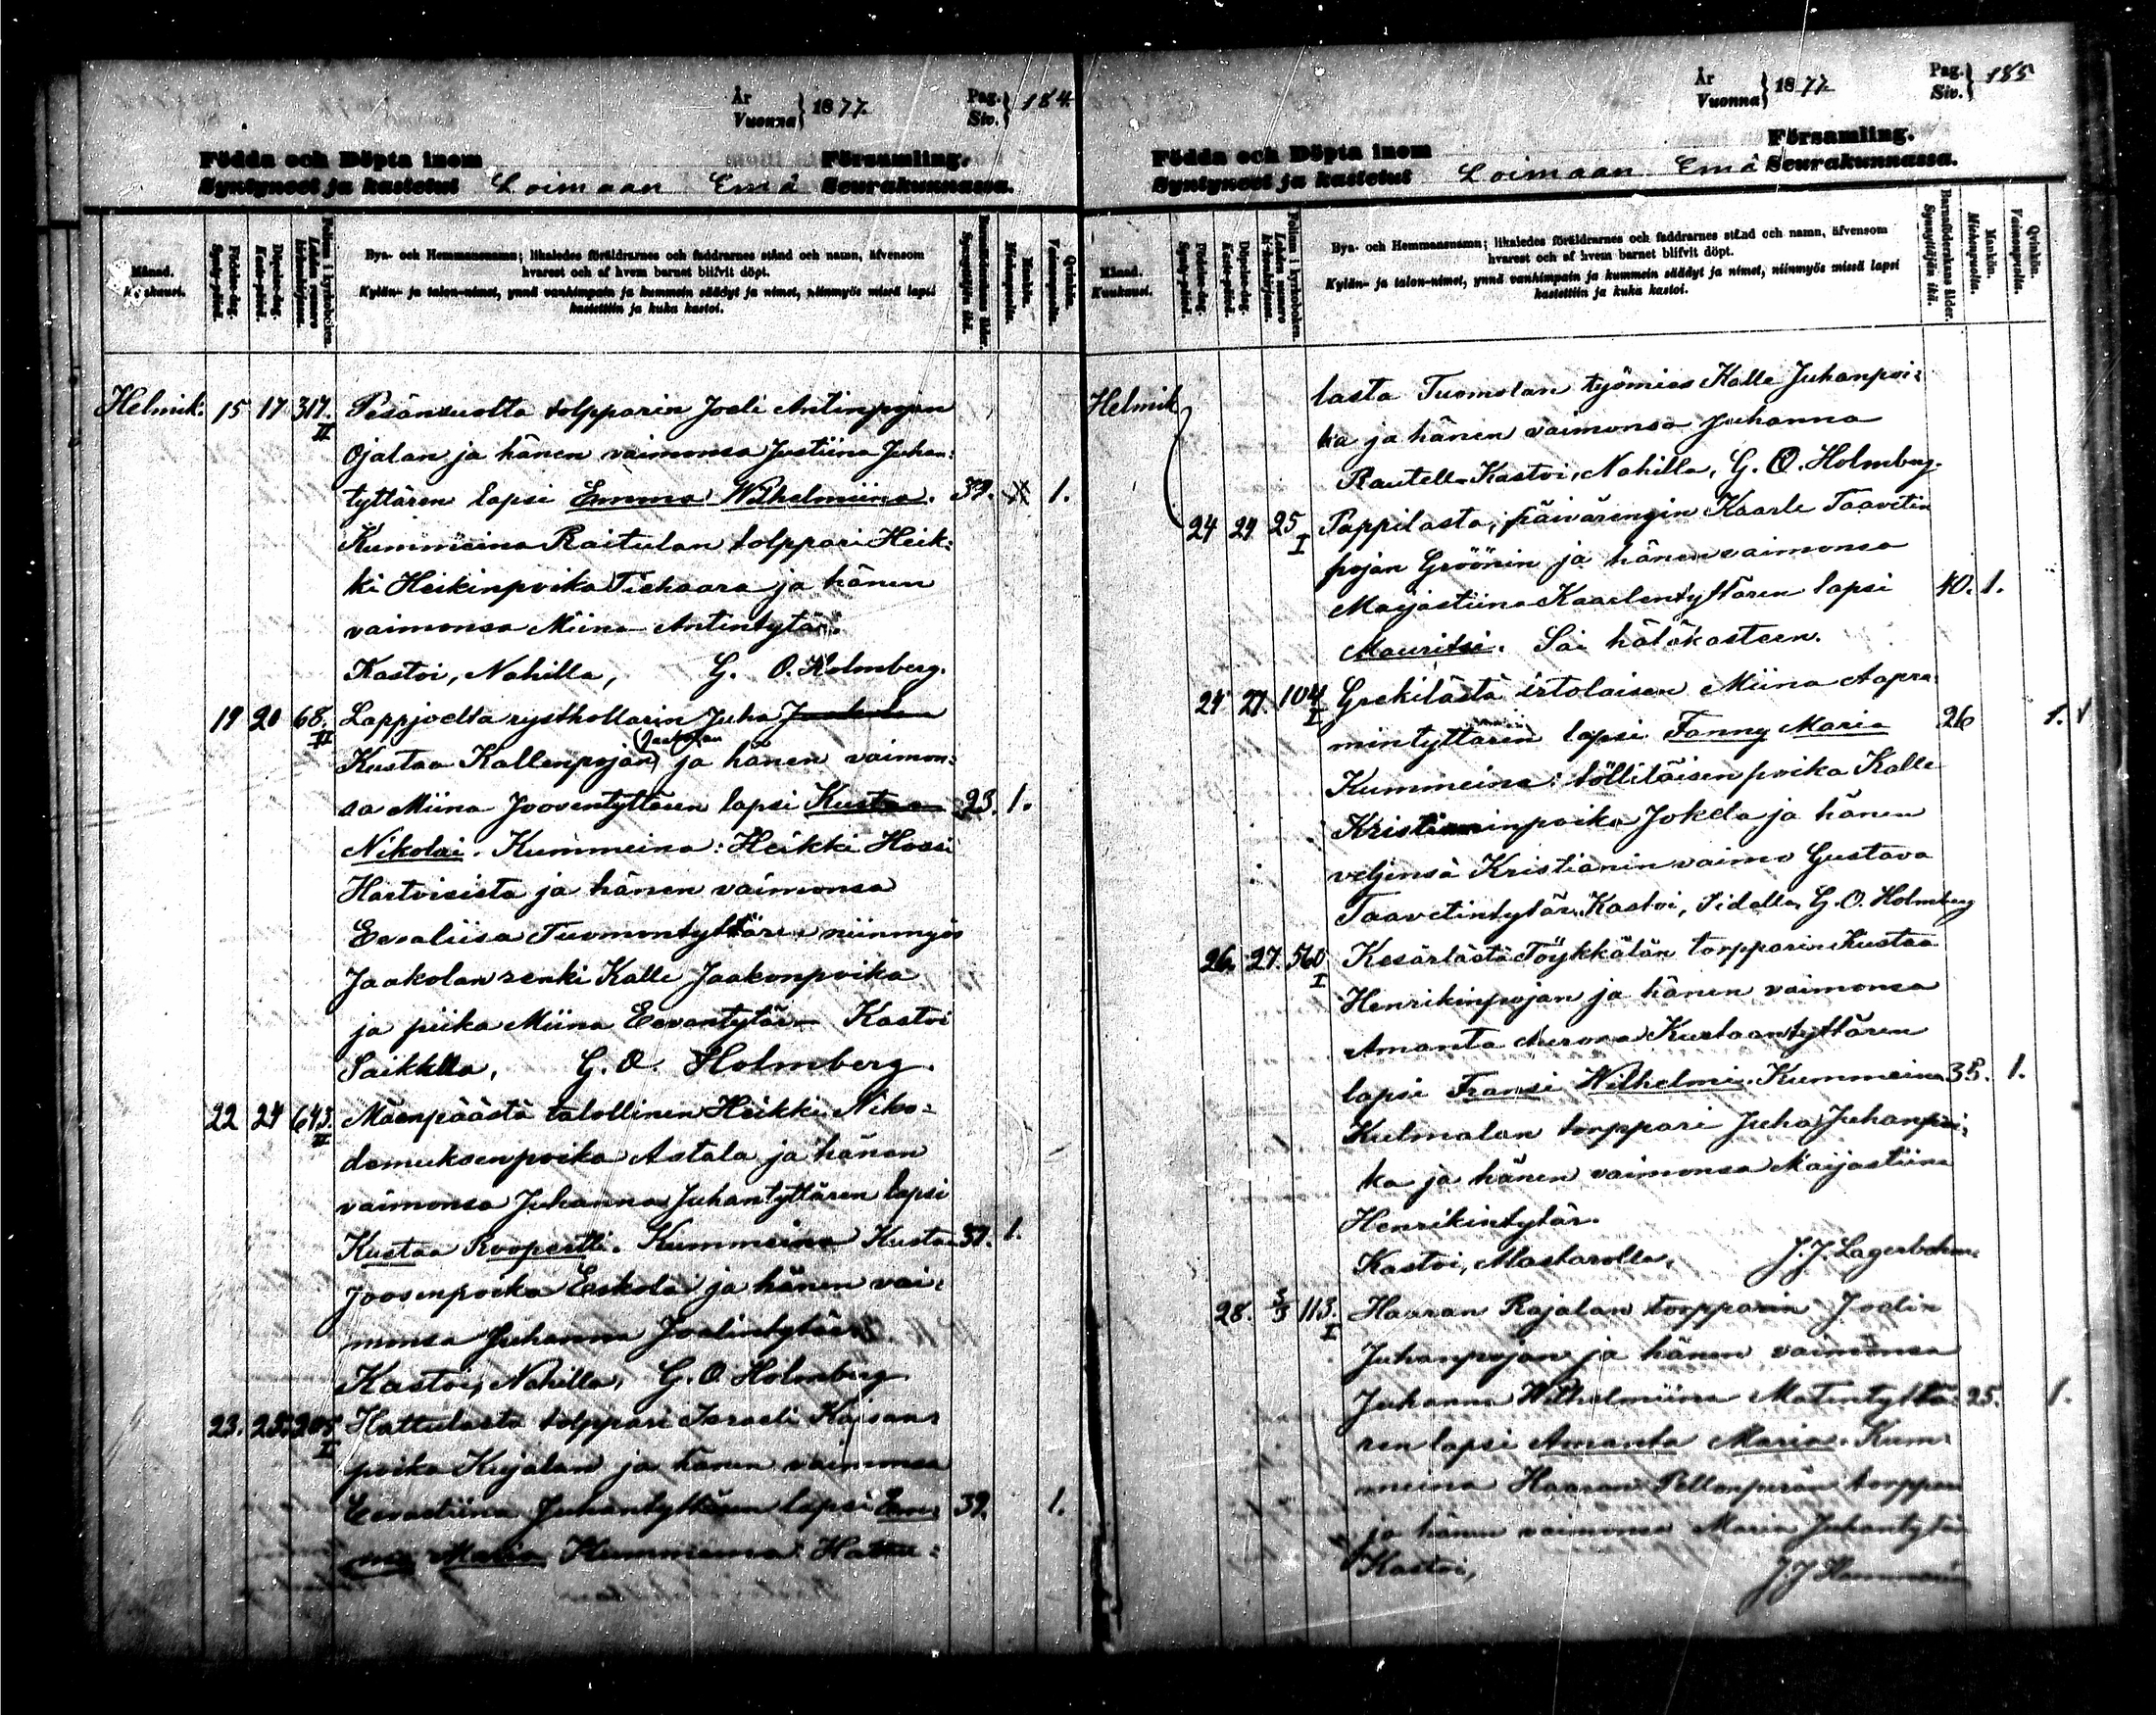 År
Vuonna } 1877.
Pag.
Siv. } 184
Födda och Döpta inom Församling.
Syntyneet ja kastetut Loimaan Emä Seurakunnassa.
Månad.
Kuukausi.
Födelse-dag.
Synty-päivä.
Döpelse-dag.
Kaste-päivä.
Folium i kyrkoboken.
Lehden numero kirkonkirjassa.
Bya- och Hemmansnamn; likaledes föräldrarnes och faddrarnes stånd och namn, äfvensom
hvarest och af hvem barnet blifvit döpt.
Kylän- ja talon-nimet, ynnä vanhimpain ja kummein säädyt ja nimet, niinmyös missä lapsi
kastettiin ja kuka kastoi.
Barnaföderskans ålder.
Synnyttäjän ikä.
Mankön.
Miehenpuolia.
Qvinkön.
Vaimonpuolia.
Helmik. 15 17 317. II Pesänsuolta tolpparin Joeli Antinpojan
Ojalan ja hänen vaimonsa Justiina Juhan-
tyttären lapsi Emma Wilhelmiina. 39. 1.
Kummeina Raitulan tolppari Heik-
ki Heikinpoika Tiehaara ja hänen
vaimonsa Miina Antintytär.
Kastoi, Nahilla, G. O. Holmberg.
19 20 68. II Lappjoelta rysthollarin Juha Jaakolan
Kustaa Kallenpojan (Jaakolan) ja hänen vaimon-
sa Miina Jooventyttären lapsi Kustaa 23. 1.
Nikolai. Kummeina: Heikki Hossi
Hartoisista ja hänen vaimonsa
Eevaliisa Tuomontyttären niinmyös
Jaakolan renki Kalle Jaakonpoika
ja piika Miina Eevantytär Kastoi
Saikkalla, G. O. Holmberg.
22 24 643. II Mäenpäästä talollinen Heikki Niko-
demuksenpoika Astala ja hänen
vaimonsa Juhanna Juhantyttären lapsi
Kustaa Roopertti. Kummeina Kusta 37. 1.
Joosenpoika Eskola ja hänen vai-
monsa Juhanna Joelintytär.
Kastoi, Nahilla, G. O. Holmberg
23. 25. I Hattulasta tolppari Israeli Kaisan-
poika Kujalan ja hänen vaimonsa
Eevastiina Juhantyttären lapsi Em- 39. 1.
ma Maria Kummeina: Hattu-
År
Vuonna } 1877
Pag.
Siv. } 185
Födda och Döpta inom Församling.
Syntyneet ja kastetut Loimaan Emä Seurakunnassa.
Månad.
Kuukausi.
Födelse-dag.
Synty-päivä.
Döpelse-dag.
Kaste-päivä.
Folium i kyrkoboken.
Lehden numero kirkonkirjassa.
Bya- och Hemmansnamn; likaledes föräldrarnes och faddrarnes stånd och namn, äfvensom
hvarest och af hvem barnet blifvit döpt.
Kylän- ja talon-nimet, ynnä vanhimpain ja kummein säädyt ja nimet, niinmyös missä lapsi
kastettiin ja kuka kastoi.
Barnaföderskans ålder.
Synnyttäjän ikä.
Mankön.
Miehenpuolia.
Qvinkön.
Vaimonpuolia.
Helmik lasta Tuomolan työmies Kalle Juhanpoi-
ka ja hänen vaimonsa Juhanna
Rautell. Kastoi, Nahilla, G. O. Holmberg.
24 24 25 I Pappilasta, päivärengin Kaarle Taavetin
pojan Gröönin ja hänen vaimonsa
Maijastiina Kaarlentyttären lapsi 40. 1.
Mauritsi. Sai hätäkasteen.
24 27. 104 I Grekilästä irtolaisen Miina Aapra-
mintyttären lapsi Fanny Maria 26 1.
Kummeina: töllitäisen poika Kalle
Kristianinpoika Jokela ja hänen
veljensä Kristianin vaimo Gustava
Taavetintytär. Kastoi, G. O. Holmberg
26. 27. 560 I Kesärlästä Töykkälän torpparin Kustaa
Henrikinpojan ja hänen vaimonsa
Amanta Kustaantyttären
lapsi Fransi Wilhelmi. Kummeina 35. 1.
Kulmalan torppari Juha Juhanpoi-
ka ja hänen vaimonsa Maijastiina
Henrikintytär.
Kastoi, J. J. Lagerbohm
28. 3/3 113. I Haaran Rajalan torpparin Joelin
Juhanpojan ja hänen vaimonsa
Juhanna Wilhelmiina Matintyttä- 25. 1.
ren lapsi Amanta Maria. Kum-
meina Haaran Pellonperän torppari
ja hänen vaimonsa Maria Juhantytär
Kastoi, J. J.